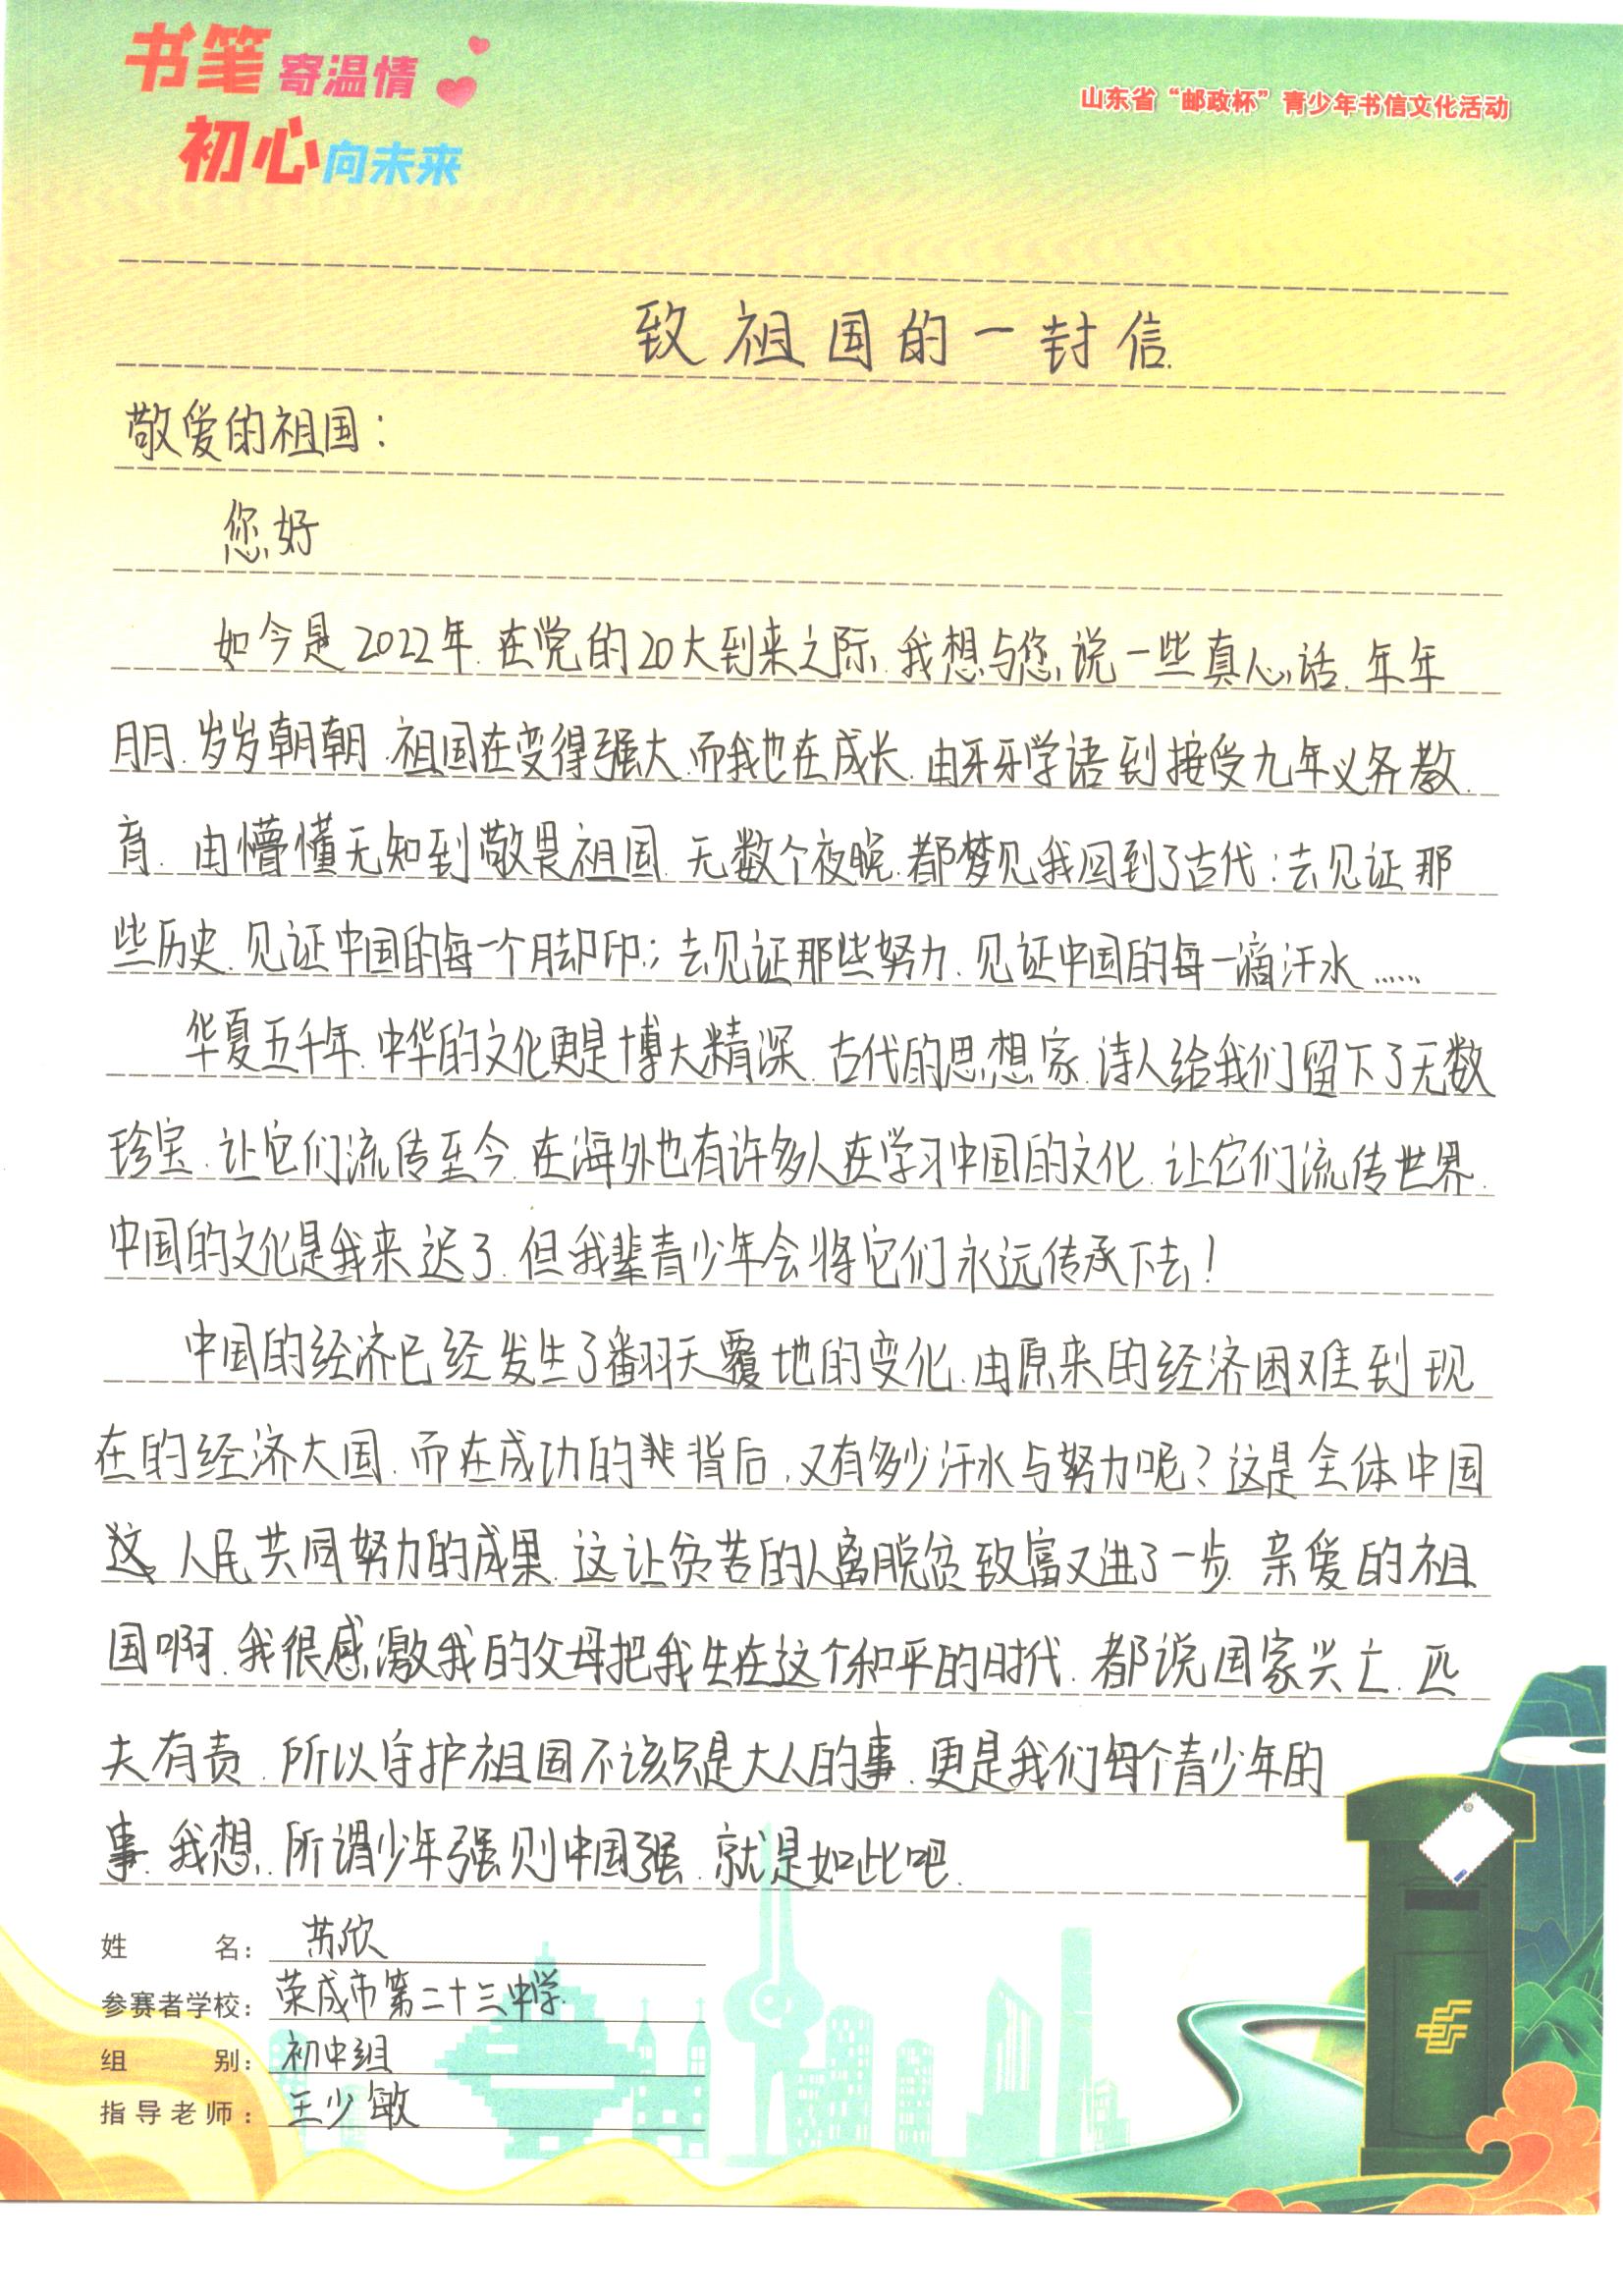 书笔寄温情
初心向未来
山东省“邮政杯”青少年书信文化活动
致祖国的一封信.
敬爱的祖国：
您好
如今是2022年.在党的20大到来之际,我想与您说一些真心话.年年
月月.岁岁朝朝.祖国在变得强大.而我也在成长.由牙牙学语到接受九年义务教
育.由懵懂无知到敬畏祖国.无数个夜晚.都梦见我回到了古代：去见证那
些历史.见证中国的每一个脚印；去见证那些努力.见证中国的每一滴汗水……
华夏五千年.中华的文化更是博大精深.古代的思想家.诗人给我们留下了无数
珍宝.让它们流传至今.在海外也有许多人在学习中国的文化.让它们流传世界.
中国的文化是我来迟了.但我辈青少年会将它们永远传承下去！
中国的经济已经发生了翻天覆地的变化.由原来的经济困难到现
在的经济大国.而在成功的背后,又有多少汗水与努力呢？这是全体中国
人民共同努力的成果.这让贫苦的人离脱贫致富又进了一步.亲爱的祖
国啊.我很感激我的父母把我生在这个和平的时代.都说国家兴亡.匹
夫有责.所以守护祖国不该只是大人的事.更是我们每个青少年的
事.我想.所谓少年强则中国强.就是如此吧.
姓名：欣
参赛者学校：荣成市第二十三中学.
组别：初中组
指导老师：王少敏